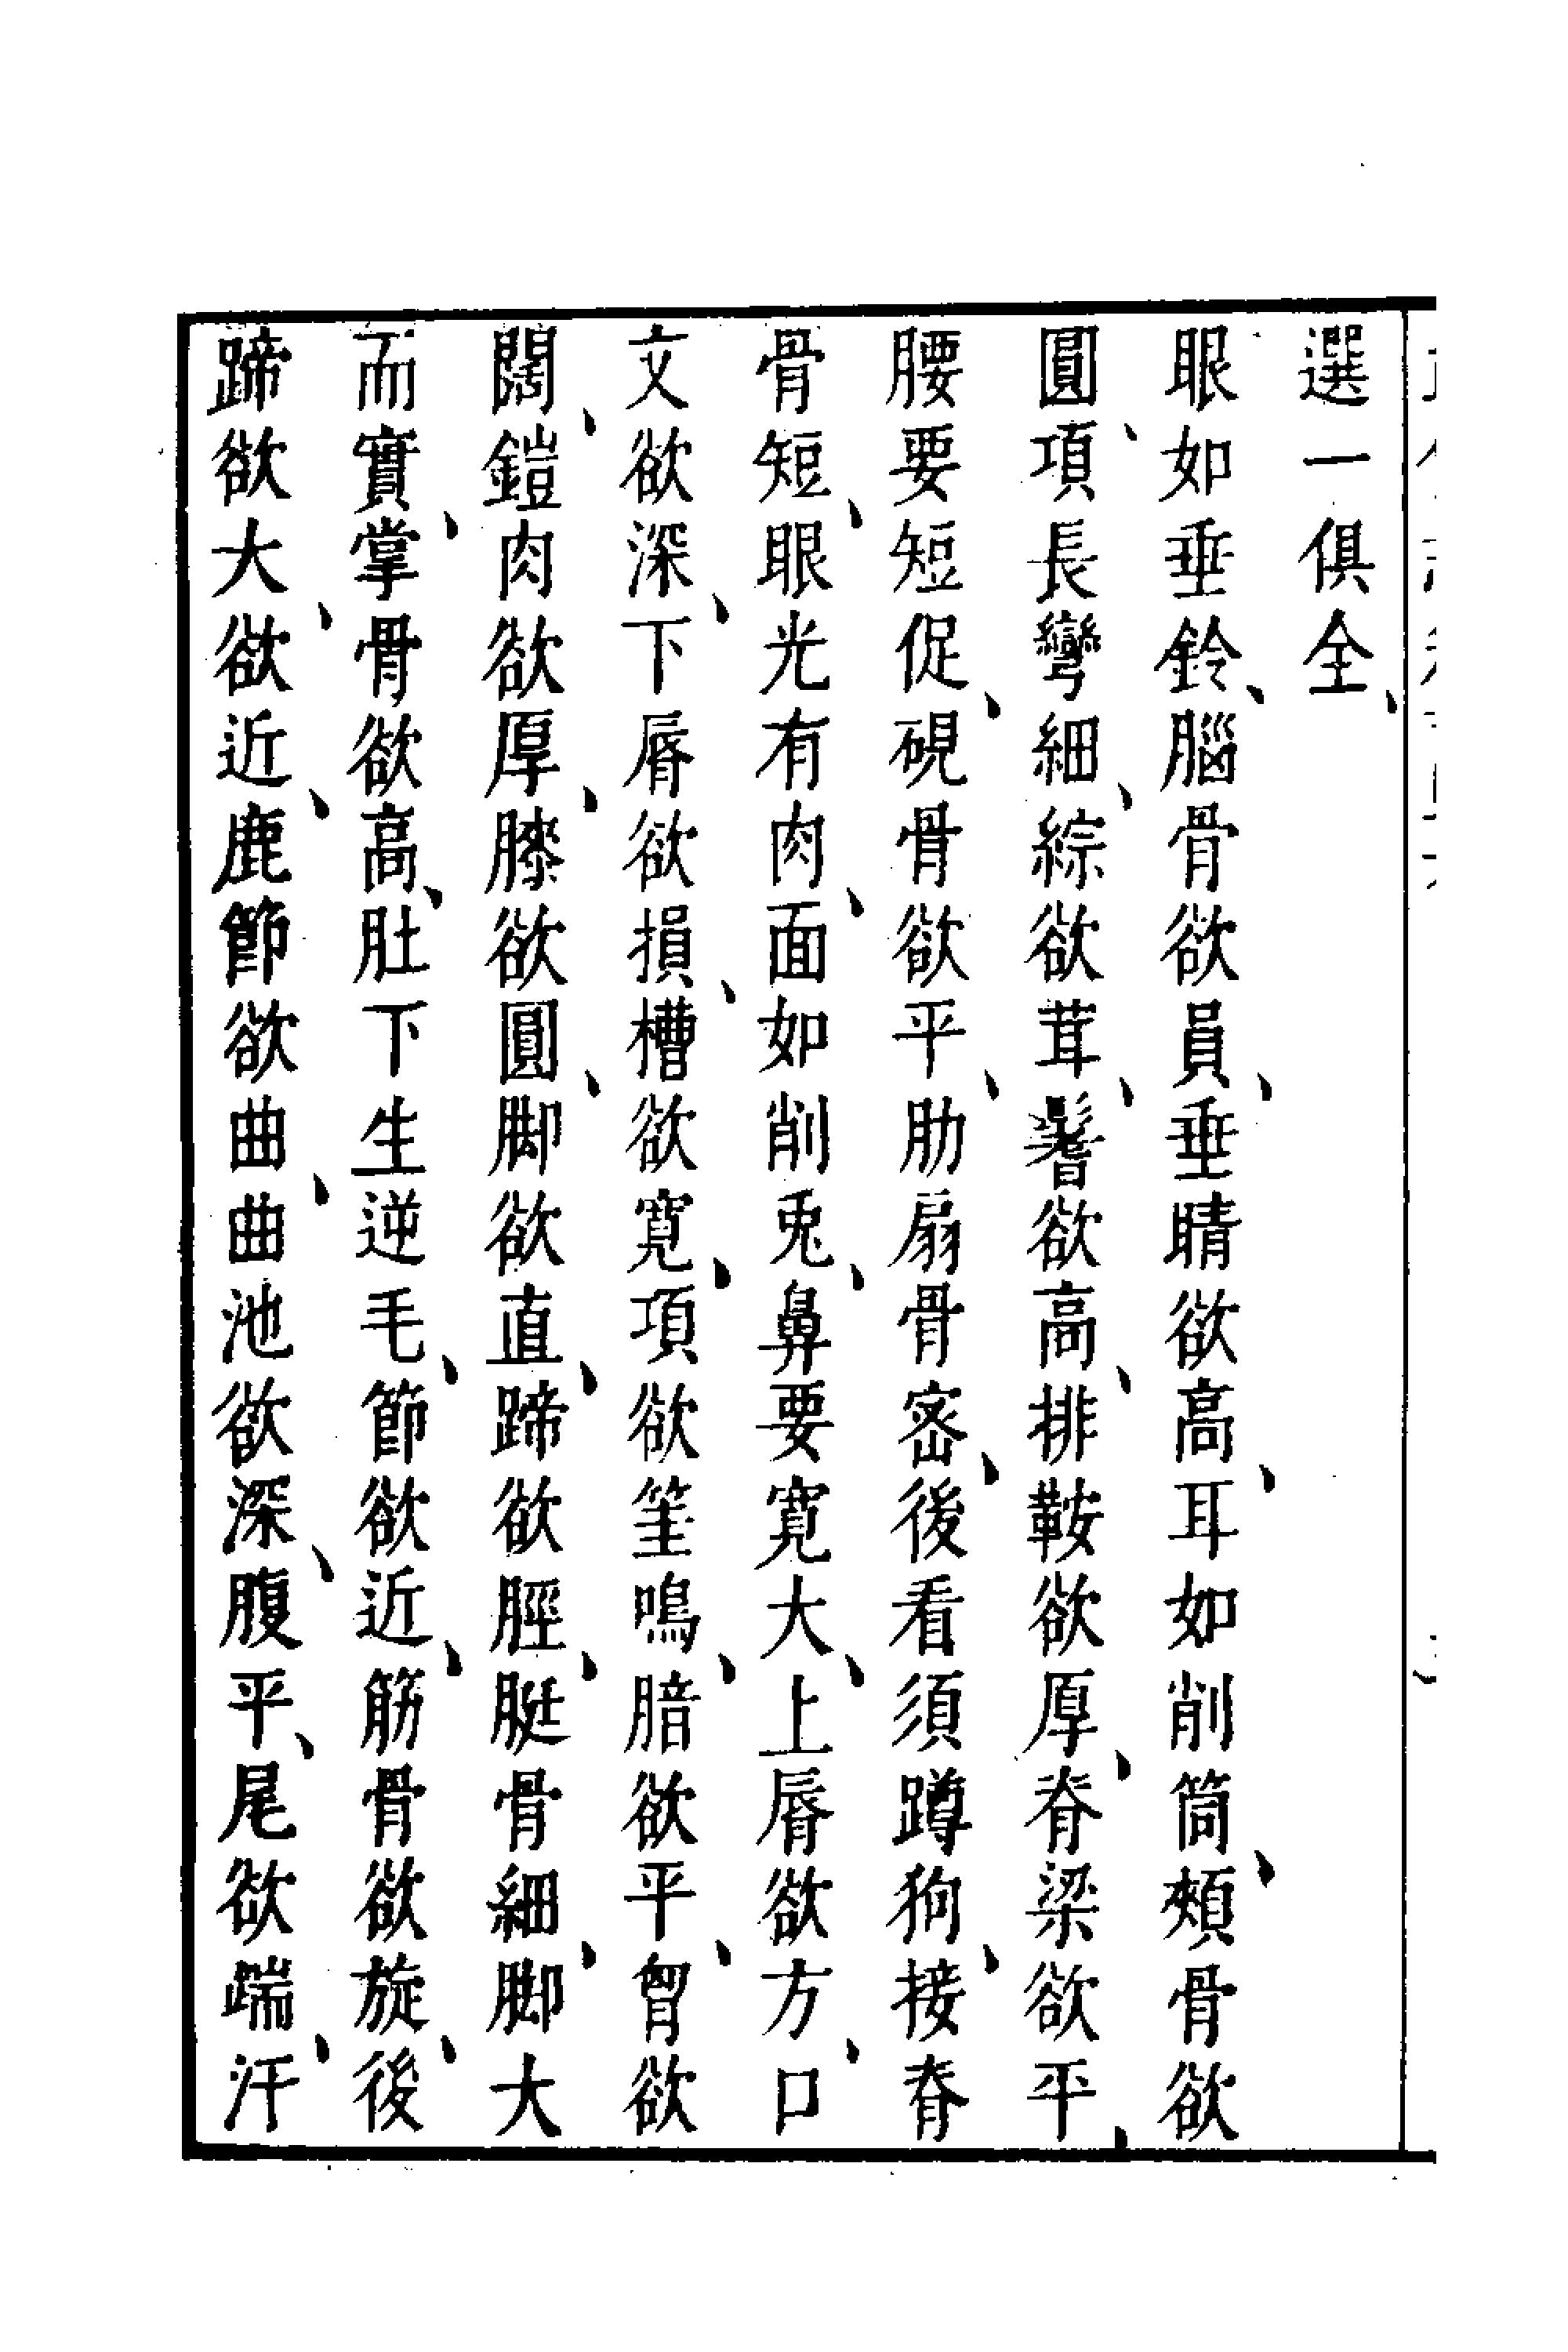 選一俱全、
眼如垂鈴、腦骨欲員、垂睛欲高、耳如削筒、頰骨欲
圓、項長彎細、綜欲茸、鬐欲高、排鞍欲厚、脊梁欲平、
腰要短促、硯骨欲平、肋扇骨密、後看須蹲狗、接脊
骨短、眼光有肉、面如削兎、鼻要寬大、上唇欲方、口
文欲深、下唇欲損、槽欲寬、項欲筀鳴、腤欲平、胷欲
闊、鎧肉欲厚、膝欲圓、脚欲直、蹄欲脛、脡骨細、脚大
而實、掌骨欲高、肚下生逆毛、節欲近、筋骨欲旋、後
蹄欲大、欲近、鹿節欲曲、曲池欲深、腹平、尾欲踹、汗